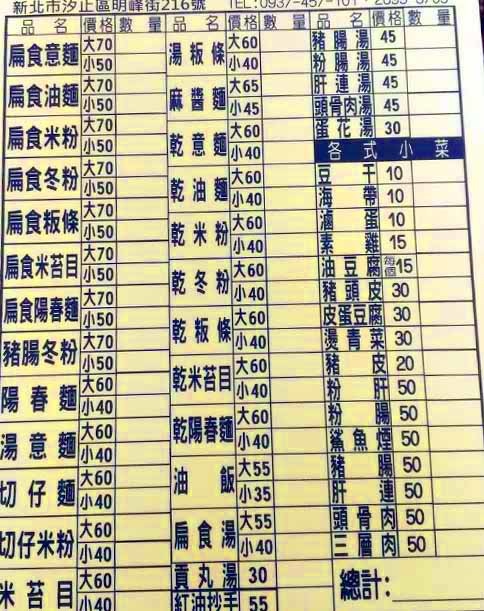 新北市汐止區明峰街216號 TEL:0937-457-101
品名 價格 數量
扁食意麵 大70 小50
扁食油麵 大70 小50
扁食米粉 大70 小50
扁食冬粉 大70 小50
扁食粄條 大70 小50
扁食米苔目 大70 小50
扁食陽春麵 大70 小50
豬腸冬粉 大70 小50
陽春麵 大60 小40
湯意麵 大60 小40
切仔麵 大60 小40
切仔米粉 大60 小40
米苔目 大60 小40
品名 價格 數量
湯粄條 大60 小40
麻醬麵 大65 小45
乾意麵 大60 小40
乾油麵 大60 小40
乾米粉 大60 小40
乾冬粉 大60 小40
乾粄條 大60 小40
乾米苔目 大60 小40
乾陽春麵 大60 小40
油飯 大55 小35
扁食湯 大55 小40
貢丸湯 30
紅油抄手 55
品名 價格 數量
豬腸湯 45
粉腸湯 45
肝連湯 45
頭骨肉湯 45
蛋花湯 30
各式小菜
豆干 10
海帶 10
滷蛋 10
素雞 15
油豆腐 每個15
豬頭皮 30
皮蛋豆腐 30
燙青菜 30
豬皮 20
粉肝 50
粉腸 50
鯊魚煙 50
豬腸 50
肝連 50
頭骨肉 50
三層肉 50
總計: